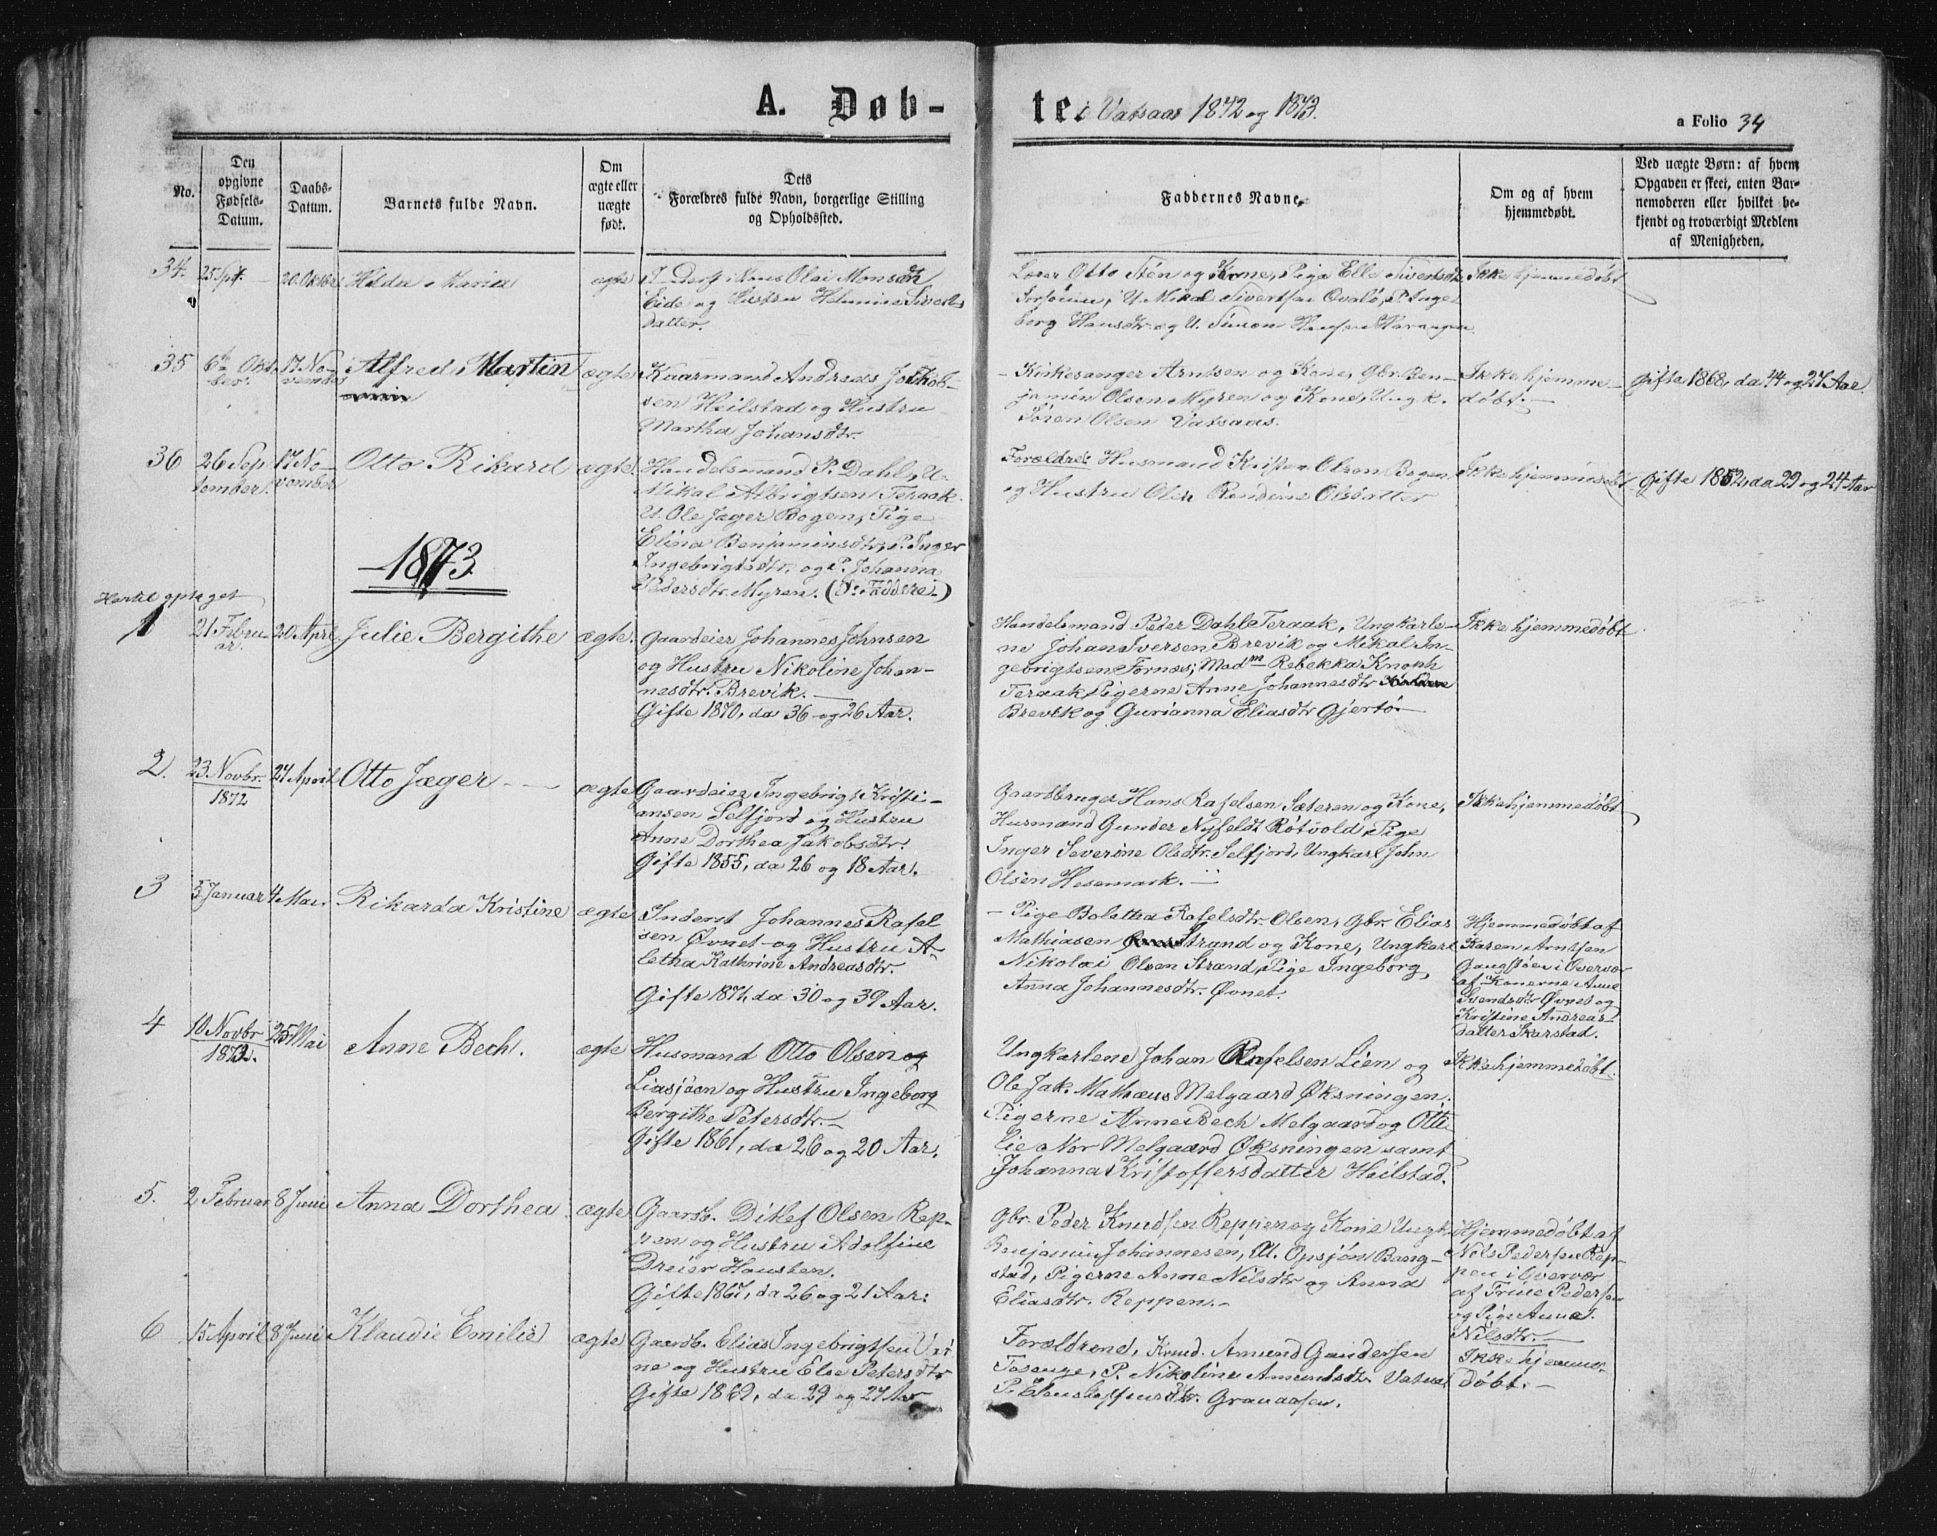 A. Døb-
te i Vatsaas 1872 og 1873.
a Folio 34
No.
Den opgivne Fødsels-Datum.
Daabs-Datum.
Barnets fulde Navn.
Om ægte eller uægte født.
Dets Forældres fulde Navn, borgerlige Stilling og Opholdssted.
Faddernes Navne.
Om og af hvem hjemmedøbt.
Ved uægte Børn: af hvem Opgaven er skeet, enten Barnemoderen eller hvilket bekjendt og troværdigt Medlem af Menigheden.
34.
25 Spt.
20. Oktober
Maria
ægte
Olai Monsen
Eide og Hustru Helmine Siverts
datter.
Lærer Otto Stén og Kone, Pige Elle Sivertsdtr
U. Mikal Sivertsen Qvalø, P. Inge-
borg Hansdtr og U. Simon Hansen
Ikke hjemmedøbt
35
6te Okto
ber.
17 No-
vember
Alfred Martin
ægte
Kaarmand Andreas Jakob-
sen Heilstad og Hustru
Martha Johansdtr.
Kirkesanger Arntsen og Kone, Gbr. Ben-
jamin Olsen Myren og Kone, Ungk.
Søren Olsen Vatsaas.
Ikke hjemme-
døbt.
Gifte 1868, da 44 og 27 Aar
36
26 Sep
tember.
17 No-
vember
Otto Rikard
ægte.
Handelsmand P. Dahl, U.
Mikal Albrigtsen Teraak.
U. Ole Jæger Bogen, Pige
Elina Benjaminsdtr, P. Inger
Ingebrigtsdtr. og P. Johanna
Pedersdtr. Myren. (Faddere.)
Forældre: Husmand Olsen Bogen
og Hustru Olsdatter
Ikke hjemmedøbt
Gifte 1852, da 29 og 24 Aar
1873.
Hertil optaget
1
21 Febru
ar.
20 April
Julie Bergithe
ægte.
Gaardeier Johannes Johnsen
og Hustru Nikoline Johan-
nesdtr. Brevik.
Gifte 1870, da 36 og 26 Aar.
Handelsmand Peder Dahl Teraak, Ungkarle-
ne Johan Iversen Brevik og Mikal In-
gebrigtsen Fornæs; Madm Rebekka Knoph
Teraak, Pigerne Anne Johannesdtr
Brevik og Gurianna Eliasdtr Gjertø
Ikke hjemmedøbt
2.
23. Novbr.
1872
27 April
Otto Jæger
ægte
Gaardeier Ingebrigt Kristi-
ansen Selfjord og Hustru
Anne Dorthea Jakobsdtr.
Gifte 1855, da 26 og 18 Aar.
Gaardbruger Hans Rafelsen Sæteren og Kone,
Husmand Gunder Nyfeldt Røtvold, Pige
Inger Severine Olsdtr. Selfjord, Ungkarl John
Olsen Hesemark.
Ikke hjemmedøbt
3
5 Januar
4 Mai
Rikarda Kristine
ægte
Inderst Johannes Rafel
sen Øvnet og Hustru A-
letha Kathrine Andreasdtr.
Gifte 1871, da 30 og 39 Aar.
Pige Boletha Rafelsdtr. Olsen, Gbr. Elias
Mathiasen Strand og Kone, Ungkarl
Nikolai Olsen Strand, Pige Ingeborg
Anna Johannesdtr. Øvnet.
Hjemmedøbt af
Karen Arntsen
i Overvær
af Konerne Anne
Svendsdtr Øvnet og
Kristine Andreas-
datter Skarstad.
4
10 Novbr
1872.
25 Mai
Anne Bech.
ægte
Husmand Otto Olsen
Liasjøen og Hustru Ingeborg
Bergithe Petersdtr.
Gifte 1861, da 26 og 20 Aar.
Ungkarlene Johan Rafelsen Lien og
Ole Jak. Mathæus Melgaard Øksningen.
Pigerne Anne Bech Melgaard og Otti
lie Nor Melgaard Øksningen samt
Johanna Kristoffersdatter Heilstad.
Ikke hjemmedøbt.
5.
2 Februar
8 Juni
Anna Dorthea
ægte
Gaardb. Ditlef Olsen Rep-
pen og Hustru Adolfine
Dreier Hansten.
Gifte 1867, da 26 og 21 Aar.
Gbr. Peder Knudsen Reppen og Kone Ungk
Benjamin Johannesen, Bang-
stad, Pigerne Anne Nilsdtr og Anna
Eliasdtr. Reppen.
Hjemmedøbt af
Nils Pedersen Rep-
pen i Overvær
af Trine Pedersen
og Pige Anne
Nilsdtr.
6
15 April
8 Juni
Klaudie Emilie
ægte
Gaardb. Elias Ingebrigtsen
og Hustru Else Petersdtr
Gifte 1869, da 29 og 27 Aar
Forældrene, Amund Gundersen
P. Nikoline Amundsdtr.
Granaasen.
Ikke hjemme-
døbt.